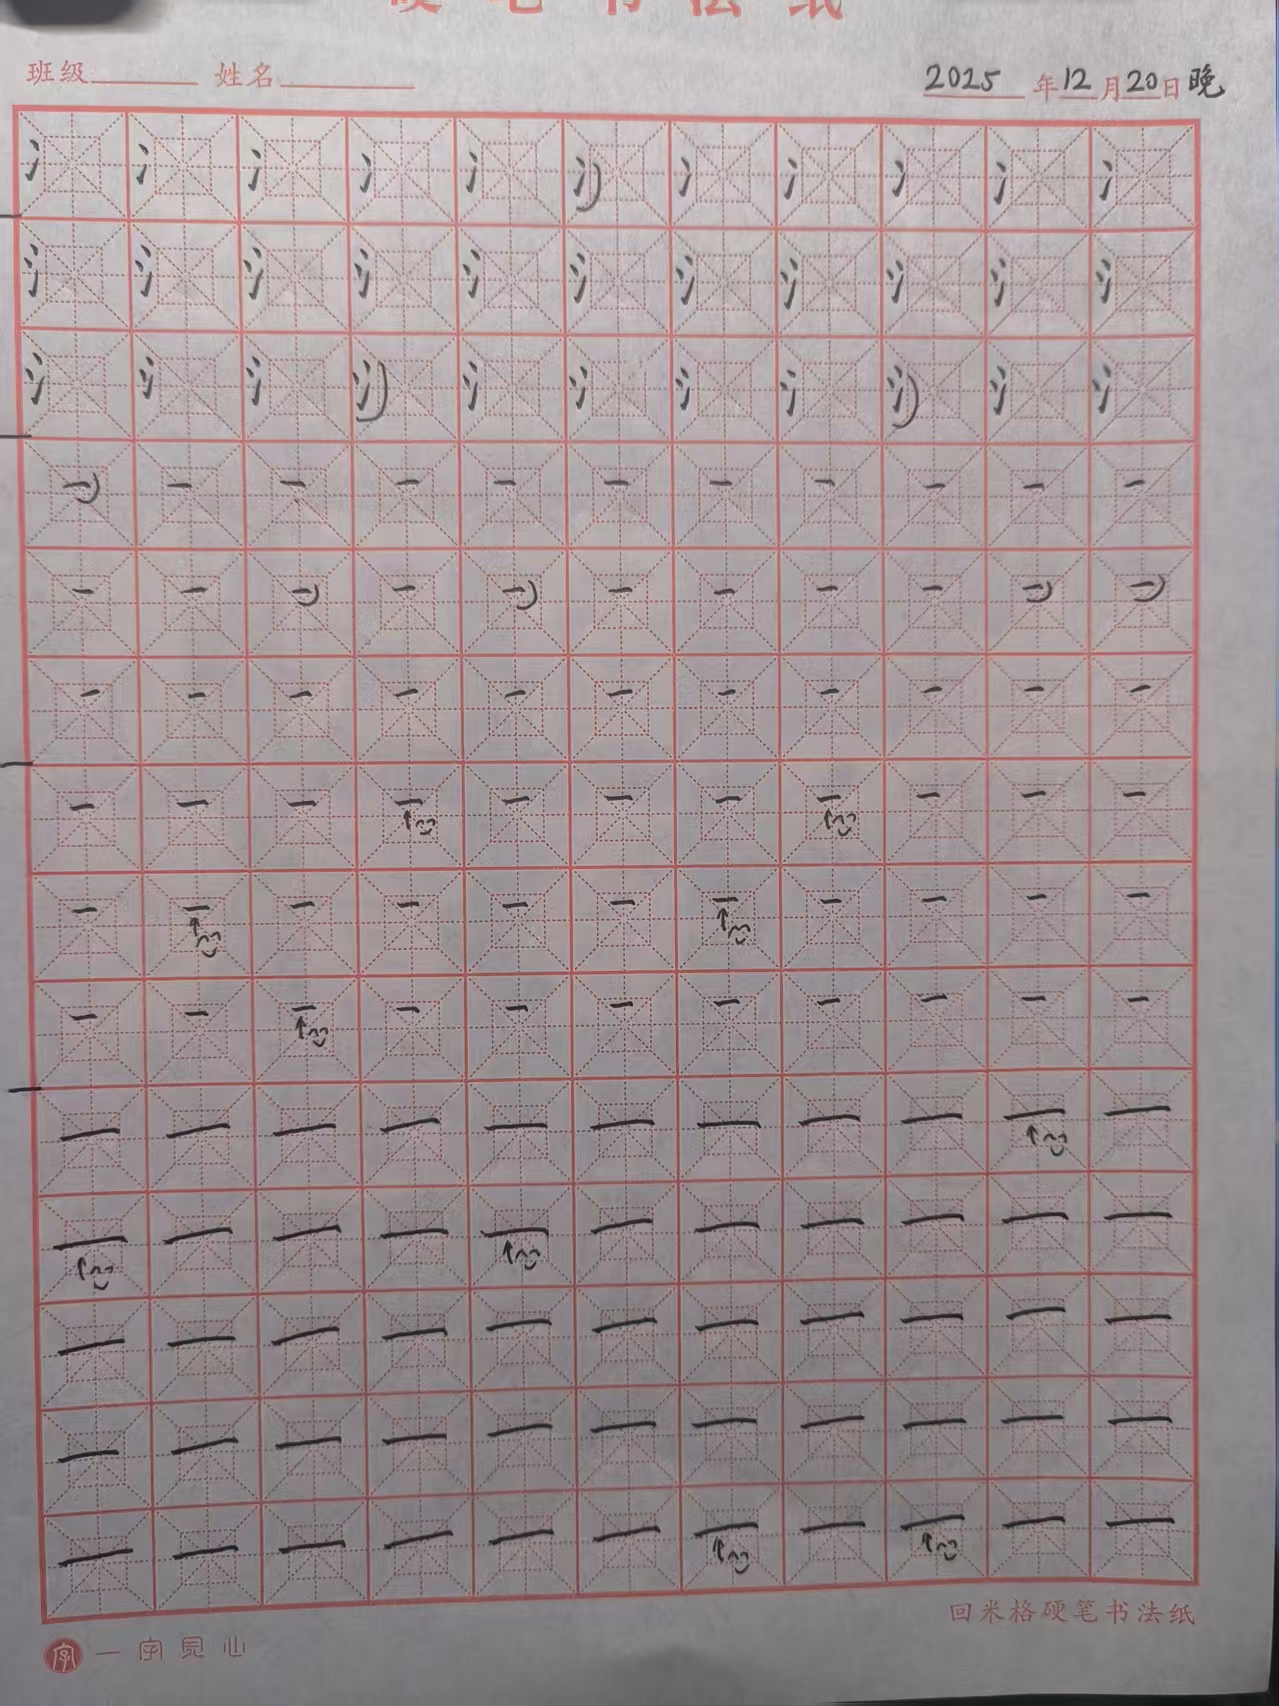 硬笔书法纸
班级 姓名 2025年12月20日晚
冫冫冫冫冫冫冫冫冫冫冫
氵氵氵氵氵氵氵氵氵氵氵
氵氵氵氵氵氵氵氵氵氵氵
一一一一一一一一一一一
一一一一一一一一一一一
一一一一一一一一一一一
一一一一一一一一一一一
一一一一一一一一一一一
一一一一一一一一一一一
一一一一一一一一一一一
一一一一一一一一一一一
一一一一一一一一一一一
一一一一一一一一一一一
一一一一一一一一一一一
回米格硬笔书法纸
字 一字见心